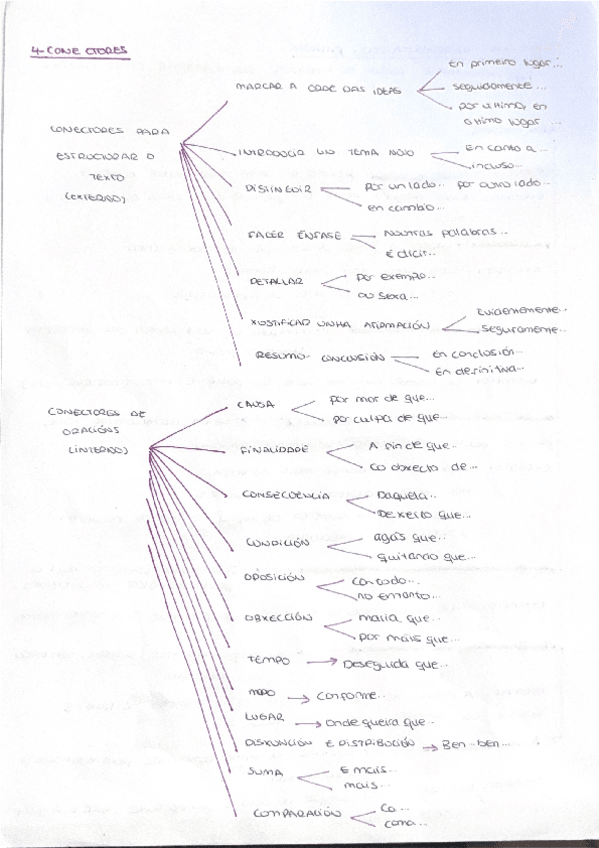 4-CONECTORES
CONECTORES PARA
ESTRUCTURAR O
TEXTO
(EXTERNO)
MARCAR A ORDE DAS IDEAS
En primeiro lugar...
seguidamente...
por último, en
último lugar...
INTRODUCIR UN TEMA NOVO
En canto a...
incluso...
DISTINGUIR
por un lado... por outro lado...
en cambio...
FACER ÉNFASE
Noutras palabras...
É dicir...
DETALLAR
por exemplo...
ou sexa...
XUSTIFICAR UNHA AFIRMACIÓN
Evidentemente...
seguramente...
RESUMO-CONCLUSIÓN
En conclusión...
En definitiva...
CONECTORES DE
ORACIÓNS
(INTERNO)
CAUSA
por mor de que...
por culpa de que...
FINALIDADE
A fin de que...
Co obxecto de...
CONSECUENCIA
Daquela...
De xeito que...
CONDICIÓN
agás que...
quitando que...
OPOSICIÓN
con todo...
no entanto...
OBXECCIÓN
malia que...
Por máis que...
TEMPO → Deseguida que...
MODO → Conforme...
LUGAR → Onde queira que...
DISXUNCIÓN E DISTRIBUCIÓN → Ben...ben...
SUMA
E mais...
mais...
COMPARACIÓN
Co...
coma...